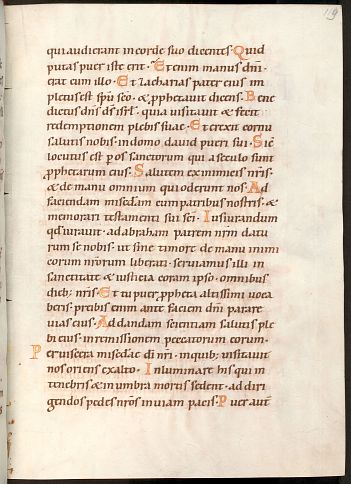 119
qui audierant in corde suo dicentes· Quid
putas puer iste erit· Etenim manus dn̄i·
erat cum illo· Et zacharias pater eius im
pletus est spū sc̄o· & p̱phetauit dicens· Bene
dictus dn̄s d̄s isrl̄· quia uisitauit & fecit
redemptionem plebis suae· Et erexit cornu
salutis nobis· in domo dauid pueri sui· Sic̄
locutus est p os sanctorum qui a seculo sunt
p̱phetarum eius· Salutem ex inimicis nr̄is·
& de manu omnium qui oderunt nos· Ad
faciendam mis̄cdam cum patribus nostris· &
memorari testamenti sui sc̄i· Iusiurandum
qd̄ iurauit· ad abraham patrem nr̄m datu
rum se nobis· ut sine timore de manu inimi
corum nr̄orum liberati· seruiamus illi in
sanctitate & iusticia coram ipso· omnibus
dieb; nr̄is· Et tu puer p̱pheta altissimi uoca
beris· preibis enim ante faciem dn̄i parare
uias eius· Ad dandam scientiam salutis ple
bi eius· in remissionem peccatorum eorum·
Per uiscera mis̄cdae dī nr̄i· in quib; uisitauit
nos oriens ex alto· Inluminare his qui in
tenebris & in umbra mortis sedent· ad diri
gendos pedes nr̄os in uiam pacis· Puer aut̄